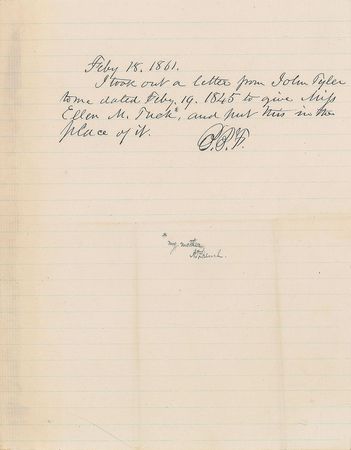 Feby 18. 1861.
I took out a letter from John Tyler
to me dated Feby. 19. 1845 to give Miss
Ellen M. Tuck*, and put this in the
place of it.
B.B.F.
* my mother
A. French.